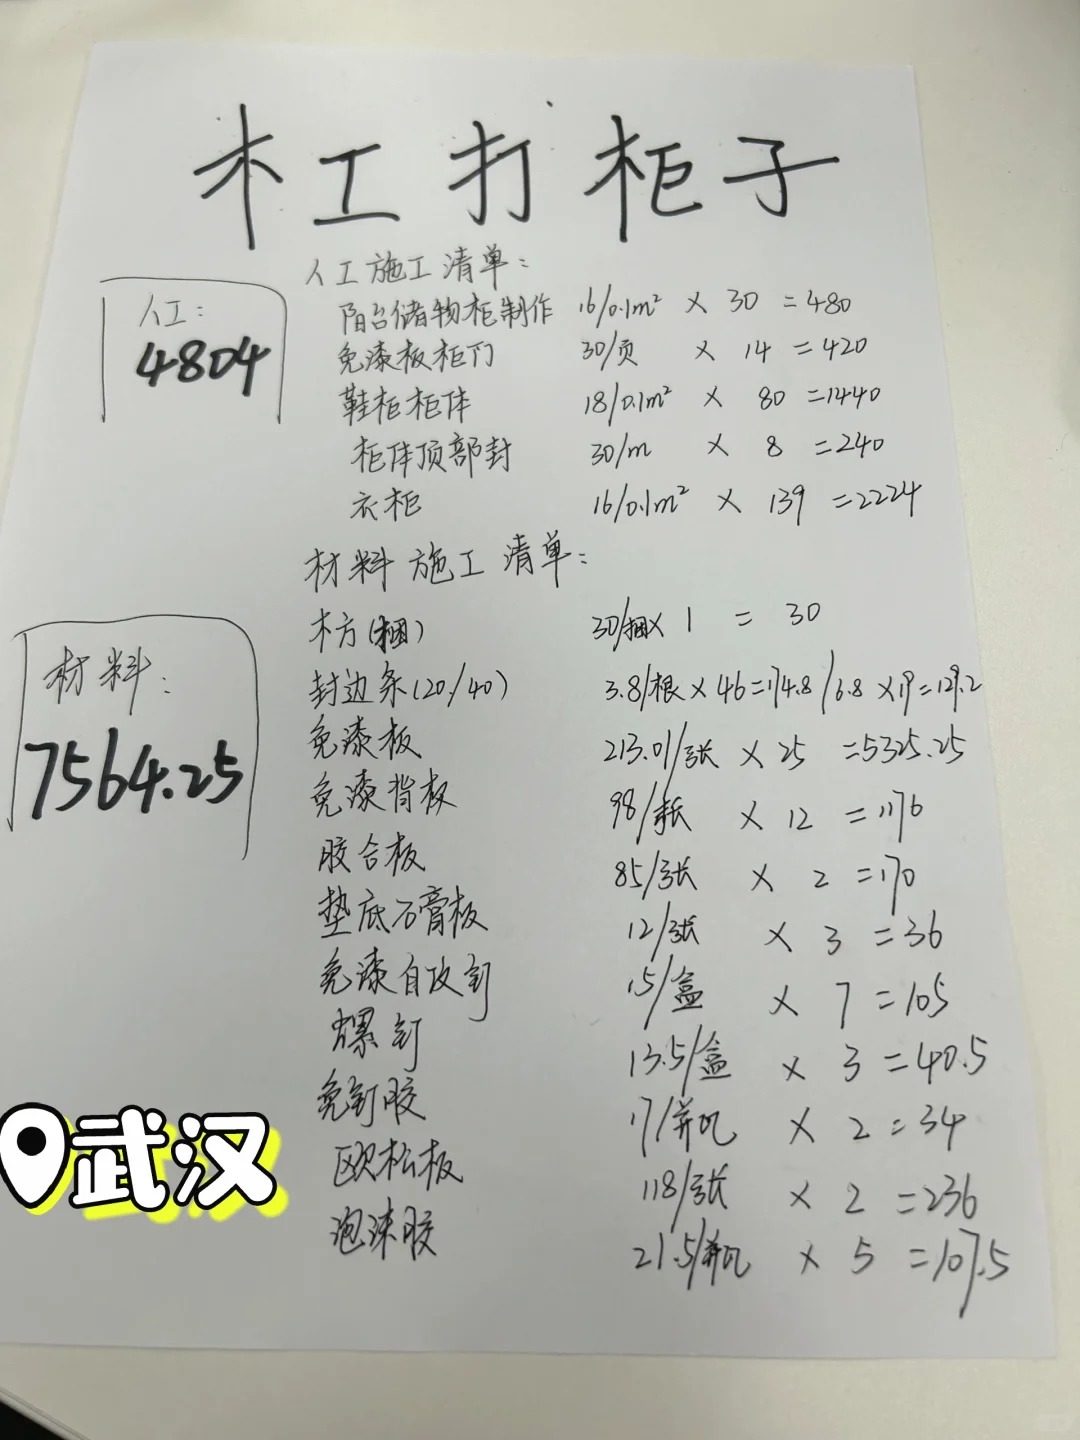 木工打柜子
人工施工清单：
人工：
4804
阳台储物柜制作 16/0.1m² × 30 = 480
免漆板柜门 30/页 × 14 = 420
鞋柜柜体 18/0.1m² × 80 = 1440
柜体顶部封 30/m × 8 = 240
衣柜 16/0.1m² × 139 = 2224
材料施工清单：
材料：
7564.25
木方(捆) 30/捆 × 1 = 30
封边条(20/40) 3.8/根 × 46 = 174.8 / 6.8 × 19 = 129.2
免漆板 213.01/张 × 25 = 5325.25
免漆背板 98/张 × 12 = 1176
胶合板 85/张 × 2 = 170
垫底石膏板 12/张 × 3 = 36
免漆自攻钉 15/盒 × 7 = 105
螺钉 13.5/盒 × 3 = 40.5
免钉胶 17/瓶 × 2 = 34
欧松板 118/张 × 2 = 236
泡沫胶 21.5/瓶 × 5 = 107.5
武汉